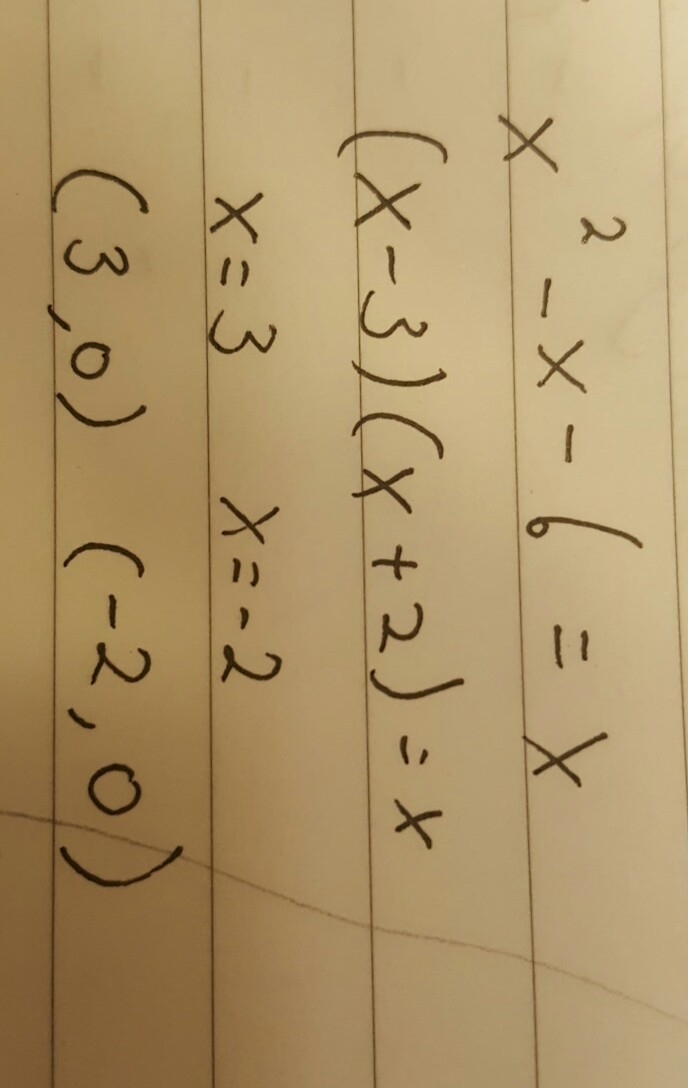 x² - x - 6 = x
(x - 3)(x + 2) = x
x = 3 x = -2
(3, 0) (-2, 0)